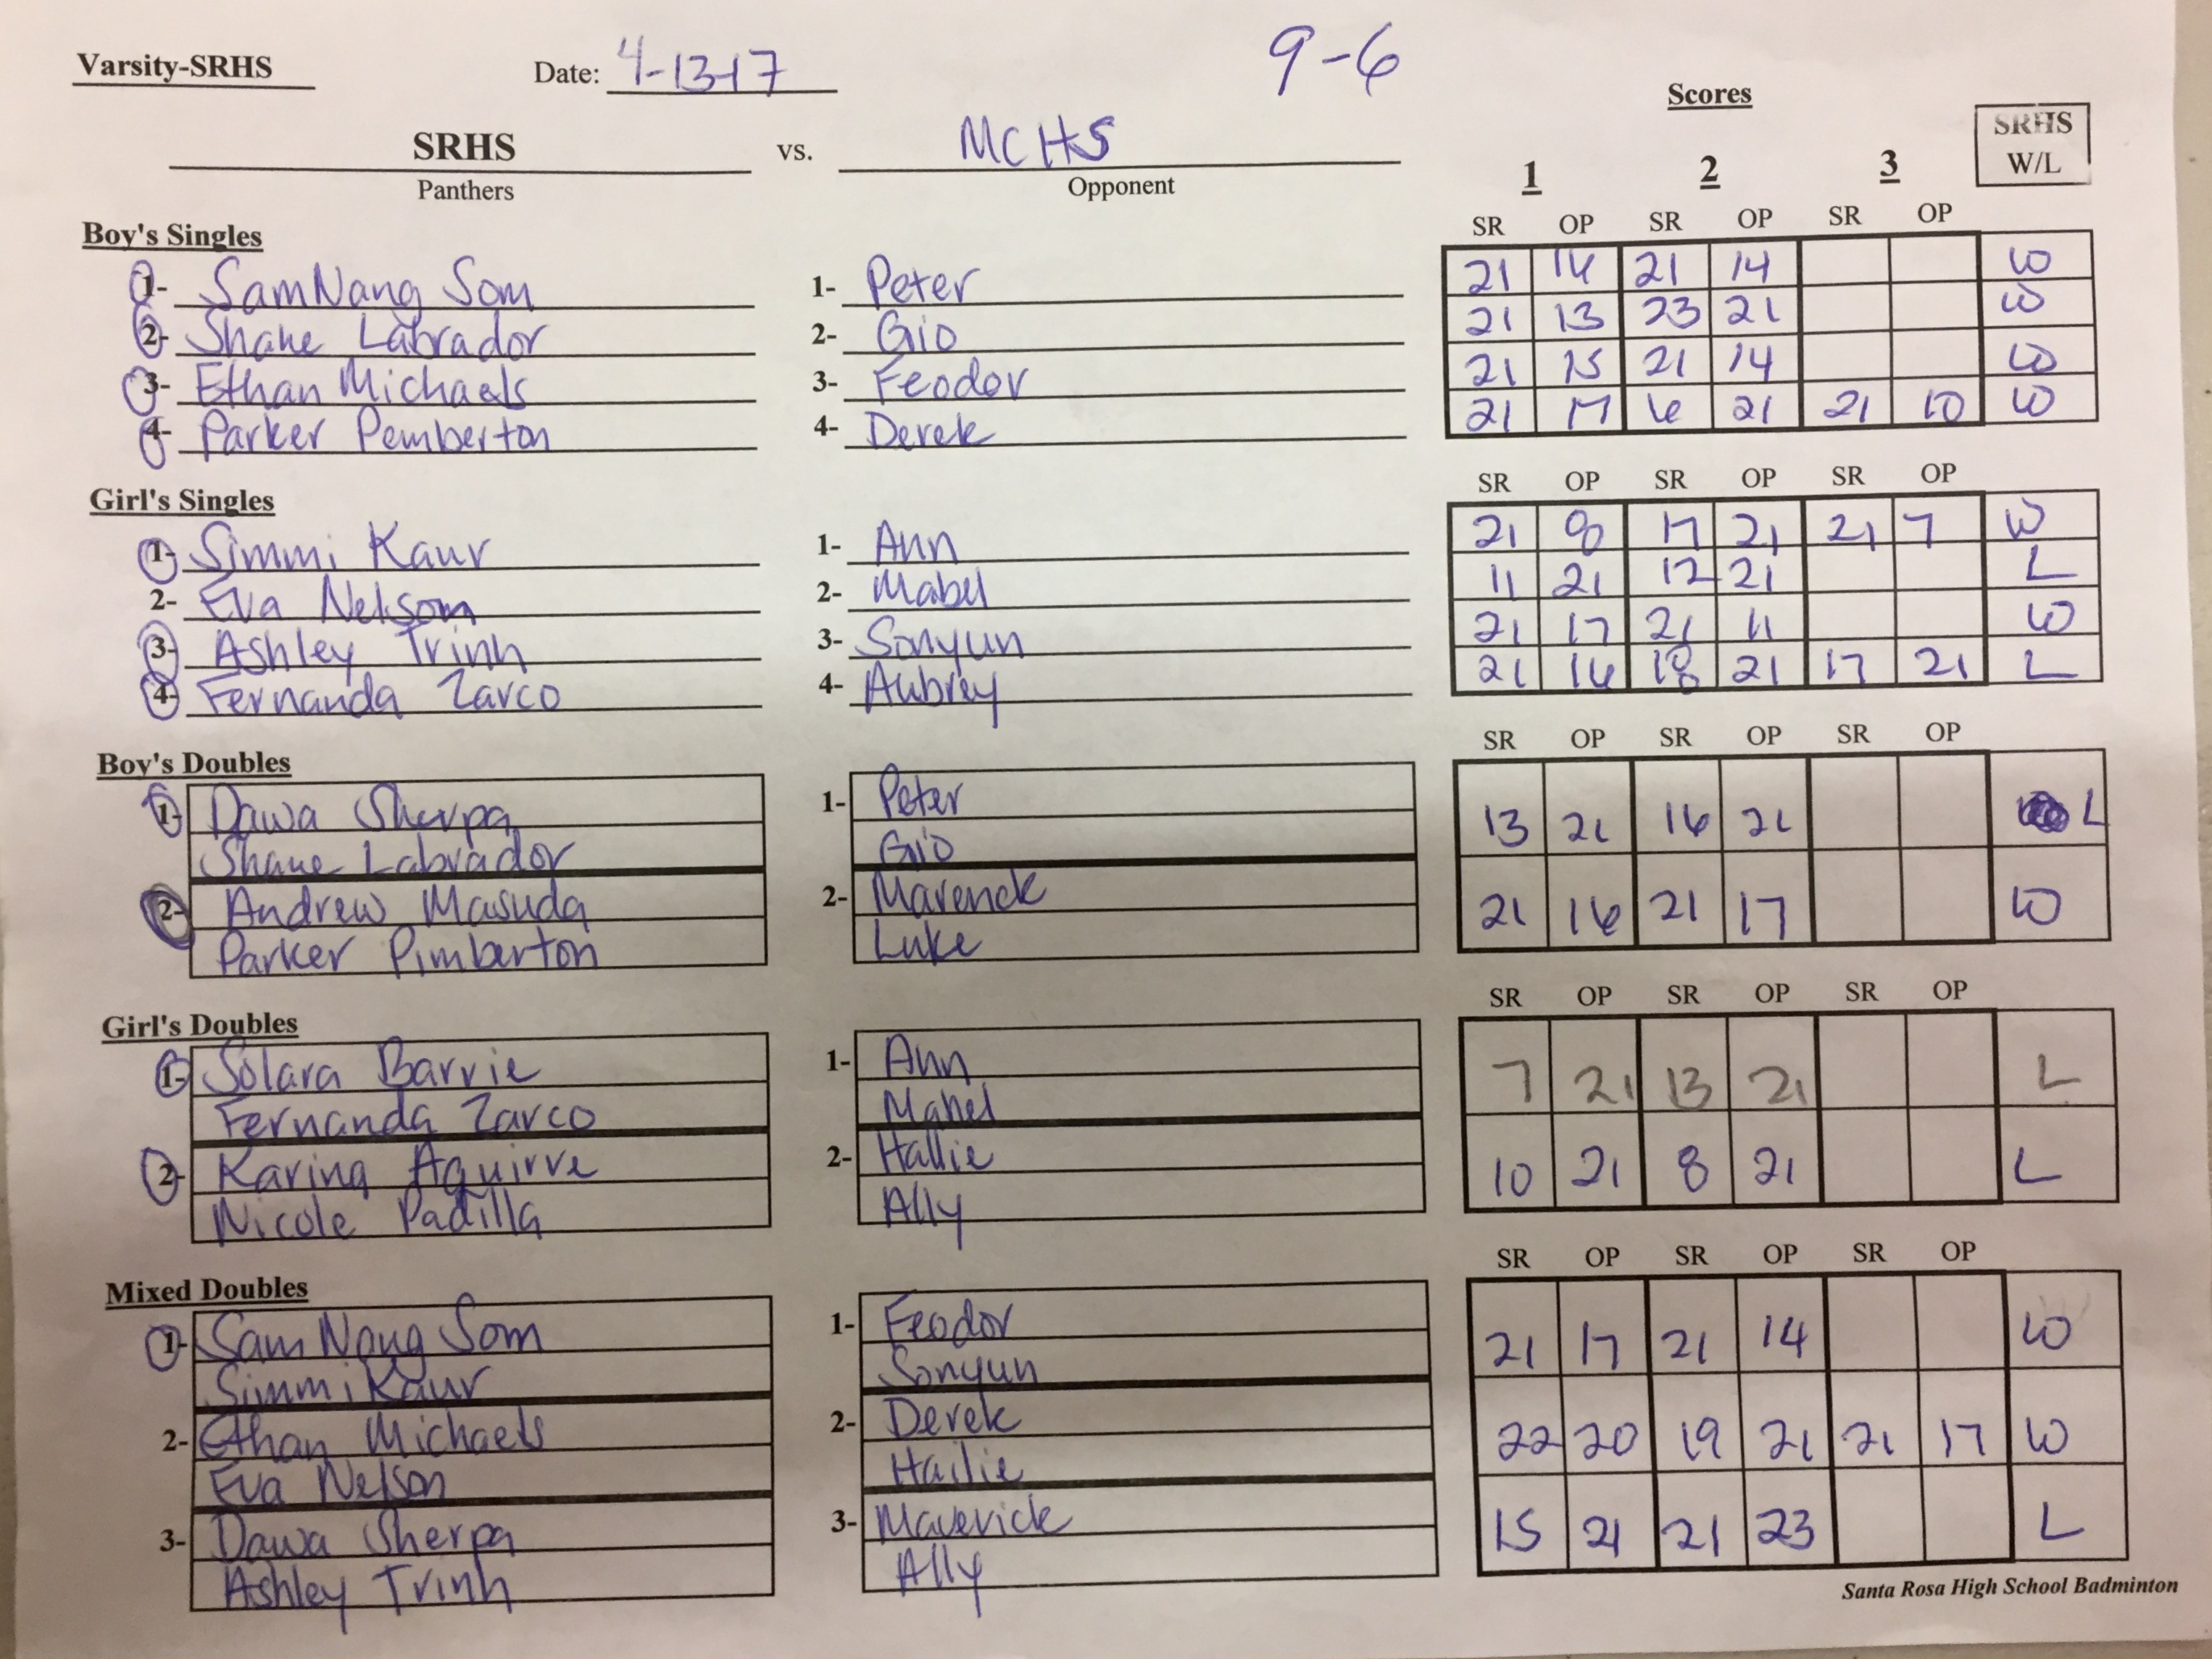 Varsity-SRHS Date: 4-13-17 9-6
Scores
SRHS vs. MCHS 1 2 3 SRHS W/L
Panthers Opponent
Boy's Singles SR OP SR OP SR OP
1- SamNang Som 1- Peter 21 16 21 14 W
2- Shane Labrador 2- Gio 21 13 23 21 W
3- Ethan Michaels 3- Feodor 21 15 21 14 W
4- Parker Pemberton 4- Derek 21 17 6 21 21 10 W
Girl's Singles SR OP SR OP SR OP
1- Simmi Kaur 1- Ann 21 8 17 21 21 7 W
2- Eva Nelsom 2- Mabel 11 21 12 21 L
3- Ashley Trinh 3- Sonyun 21 17 21 11 W
4- Fernanda Zarco 4- Aubrey 21 16 18 21 17 21 L
Boy's Doubles SR OP SR OP SR OP
1- Dawa Sherpa 1- Peter 13 21 16 21 L
Shane Labrador Gio
2- Andrew Masuda 2- Maverick 21 16 21 17 W
Parker Pimberton Luke
Girl's Doubles SR OP SR OP SR OP
1- Solara Barrie 1- Ann 7 21 13 21 L
Fernanda Zarco Mabel
2- Karina Aguirre 2- Hallie 10 21 8 21 L
Nicole Padilla Ally
Mixed Doubles SR OP SR OP SR OP
1- Sam Nang Som 1- Feodor 21 17 21 14 W
Simmi Kaur Sonyun
2- Ethan Michaels 2- Derek 22 20 19 21 21 17 W
Eva Nelson Hailie
3- Dawa Sherpa 3- Maverick 15 21 21 23 L
Ashley Trinh Ally
Santa Rosa High School Badminton